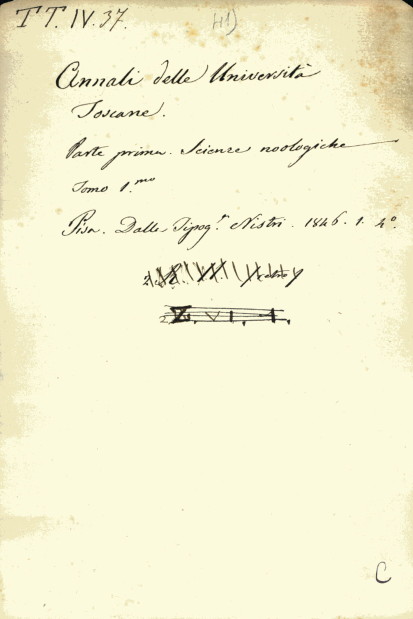 TT. IV. 37.
Annali delle Università
Toscane.
Parte prima. Scienze noologiche
Tomo 1.mo
Pisa. Dalle Tipog.e Nistri. 1846. 1. 4.o
X. VI. 4.
C